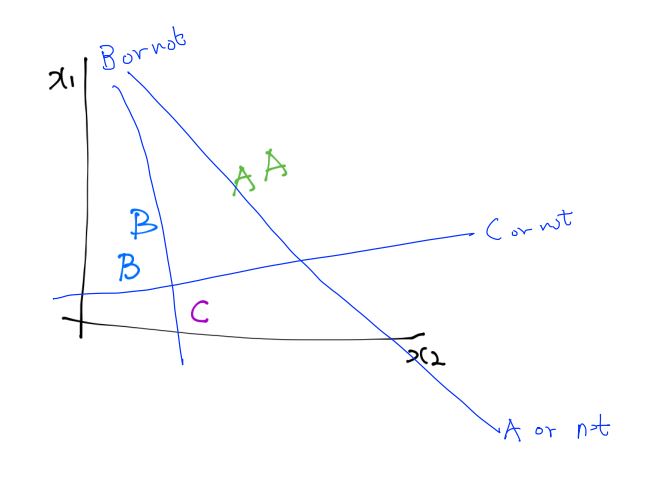 B or not
x1
A A
B
C or not
B
C
x2
A or not